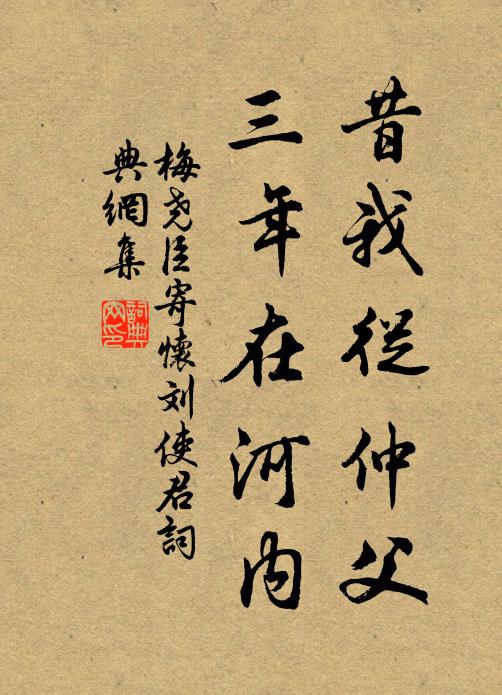 昔我從仲父
三年在河內
梅尧臣寄懷刘使君詞
典網集
詞典
网印